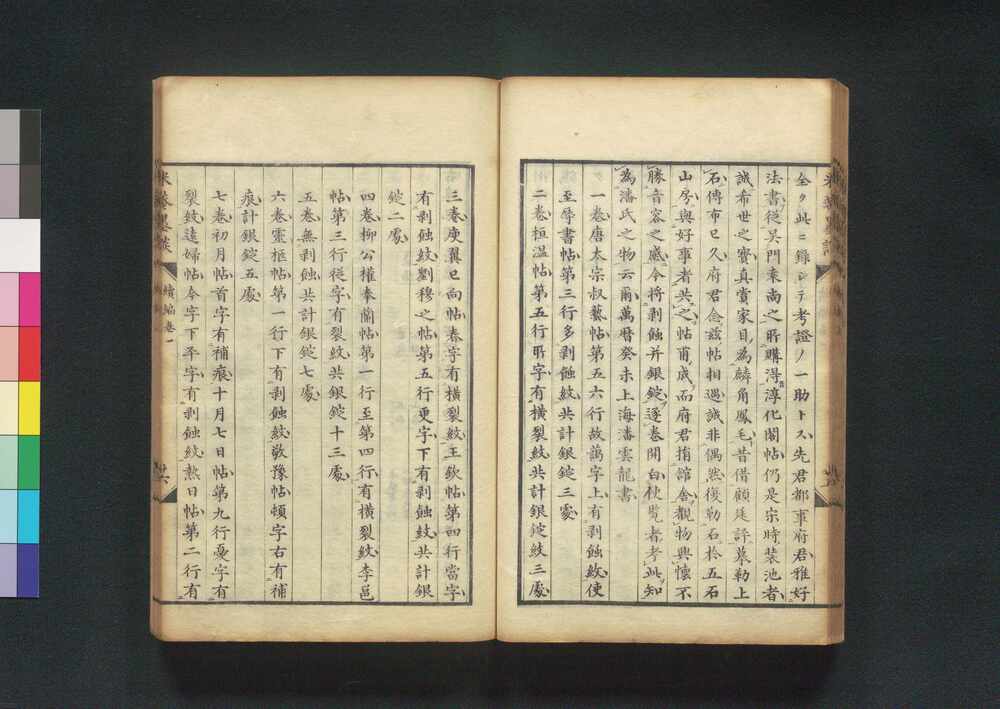 全ク此ニ錄シテ考證ノ一助トス先君都事府君雅好
法書從吳門乘尚之所購得淳化閣帖仍是宋時裝池者
誠希世之寶真賞家目為麟角鳳毛昔借顧廷評摹勒上
石傳布已久府君念兹帖相遇誠非偶然復勒石於五石
山房與好事者共之帖甫成而府君捐館舍觀物興懷不
勝音容之感今將剥蝕并銀錠逐卷開白枕覽者考此知
為潘氏之物云爾萬曆癸未上海潘雲龍書
一卷唐太宗叔藝帖第五六行故藹字上有剥蝕紋使
至辱書帖第三行多剥蝕紋共計銀錠三處
二卷桓溫帖第五行所字有橫裂紋共計銀錠紋三處
三卷庾翼已向帖春字有橫裂紋王欽帖第四行當字
有剥蝕紋劉穆之帖第五行更字下有剥蝕紋共計銀
錠二處
四卷柳公權奉蘭帖第一行至第四行有橫裂紋李邕
帖第三行從字有裂紋共銀錠十三處
五卷無剥蝕共計銀錠七處
六卷靈柩帖第一行下有剥蝕紋敬豫帖頓字右有補
痕計銀錠五處
七卷初月帖首字有補痕十月七日帖第九行憂字有
裂紋遠婦帖今字下平字有剥蝕紋熱日帖第二行有
米菴墨談
續編卷一